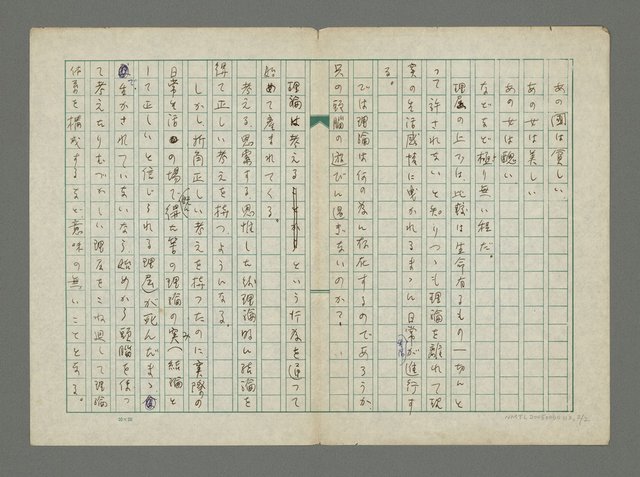 あの国は貧しい
あの女は美しい
あの女は醜い
などなど極り無い程だ。
理屈の上では、比較は生命有るもの一切んと
って許されないと知りつゝも理論を離れて現
実の生活感情に曳かれるまゝん日常が進行す
る。
では理論は何の為ん存在するのであろうか
只の頭脳の遊びん過ぎないのか?
理論は考える という行為を通って
始めて産まれてくる。
考える、思索する、思惟した後理論的ん結論を
得て正しい考えを持つようんなる。
しかし折角正しい考えを持つたのに実際の
日常生活の場で得た筈の理論の実(結論と
して正しいと信じられる理屈)が死んだまゝ
生かされていないなら始めから頭脳を使つ
て考えたりむづかしい理屈をこね廻して理論
体系を構成するなど意味の無いことゝなる。
20×20
NMTL20050080112 2/2